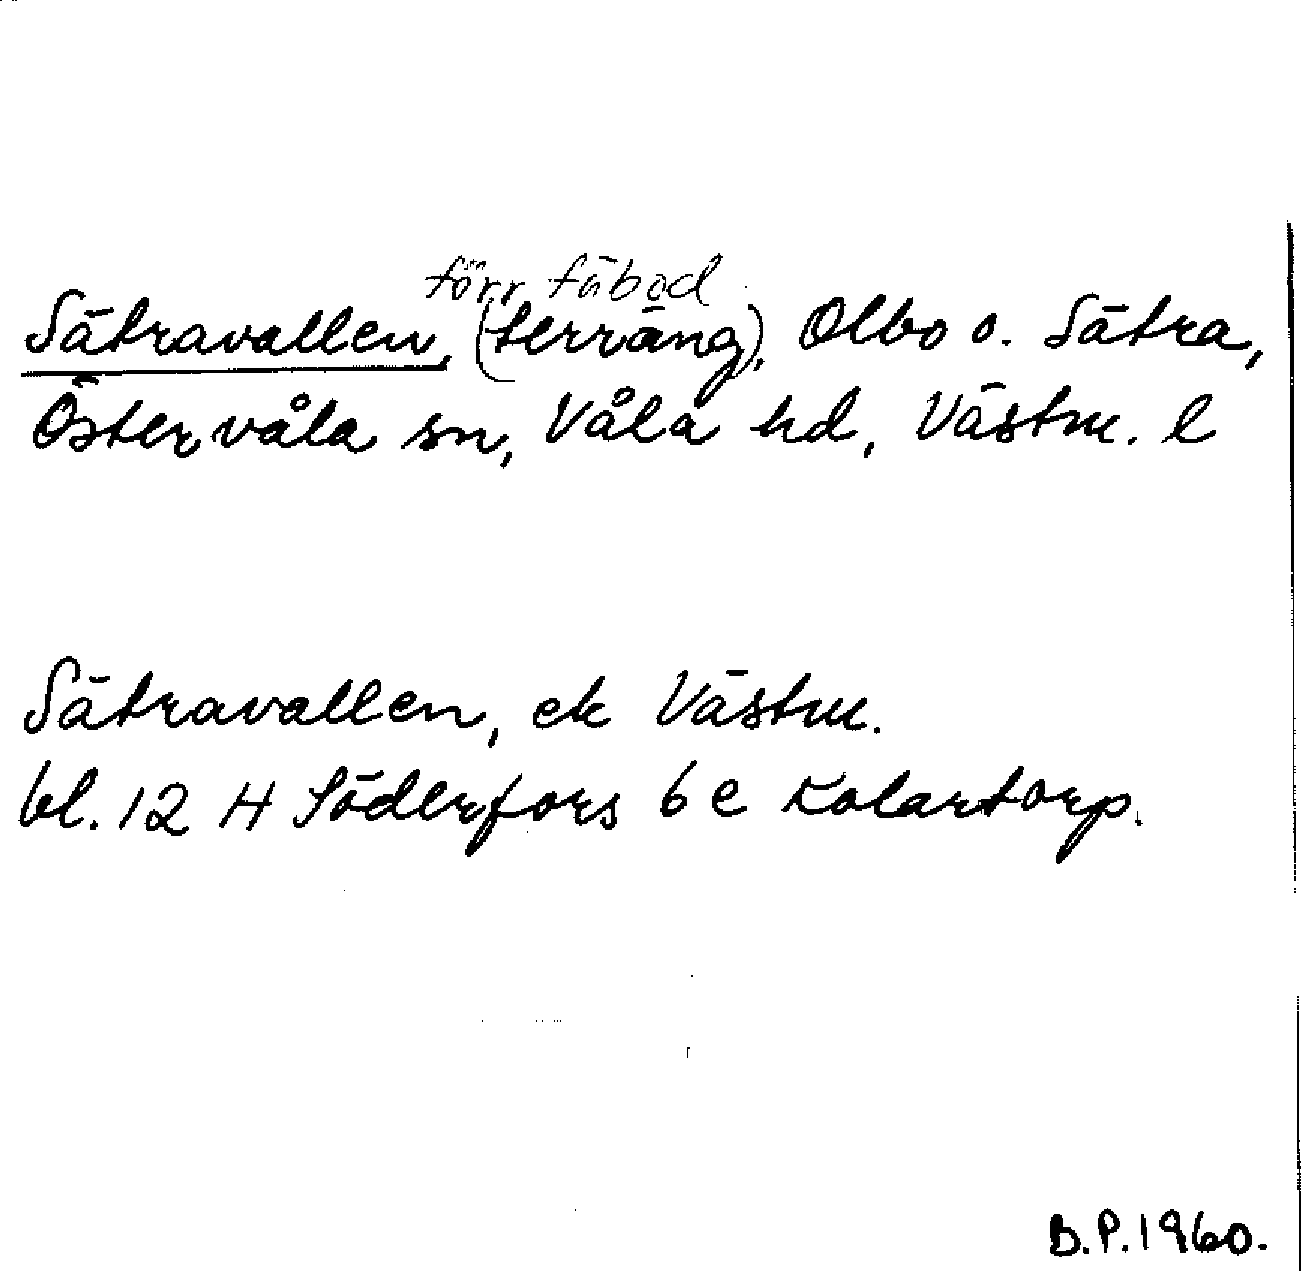 förr fäbod
Sätravallen, (terräng), Olbo o. Sätra,
Östervåla sn, Våla hd, Västm. l
Sätravallen, ek Västm.
bl. 12 H Söderfors 6 e Kolartorp.
B.P.1960.